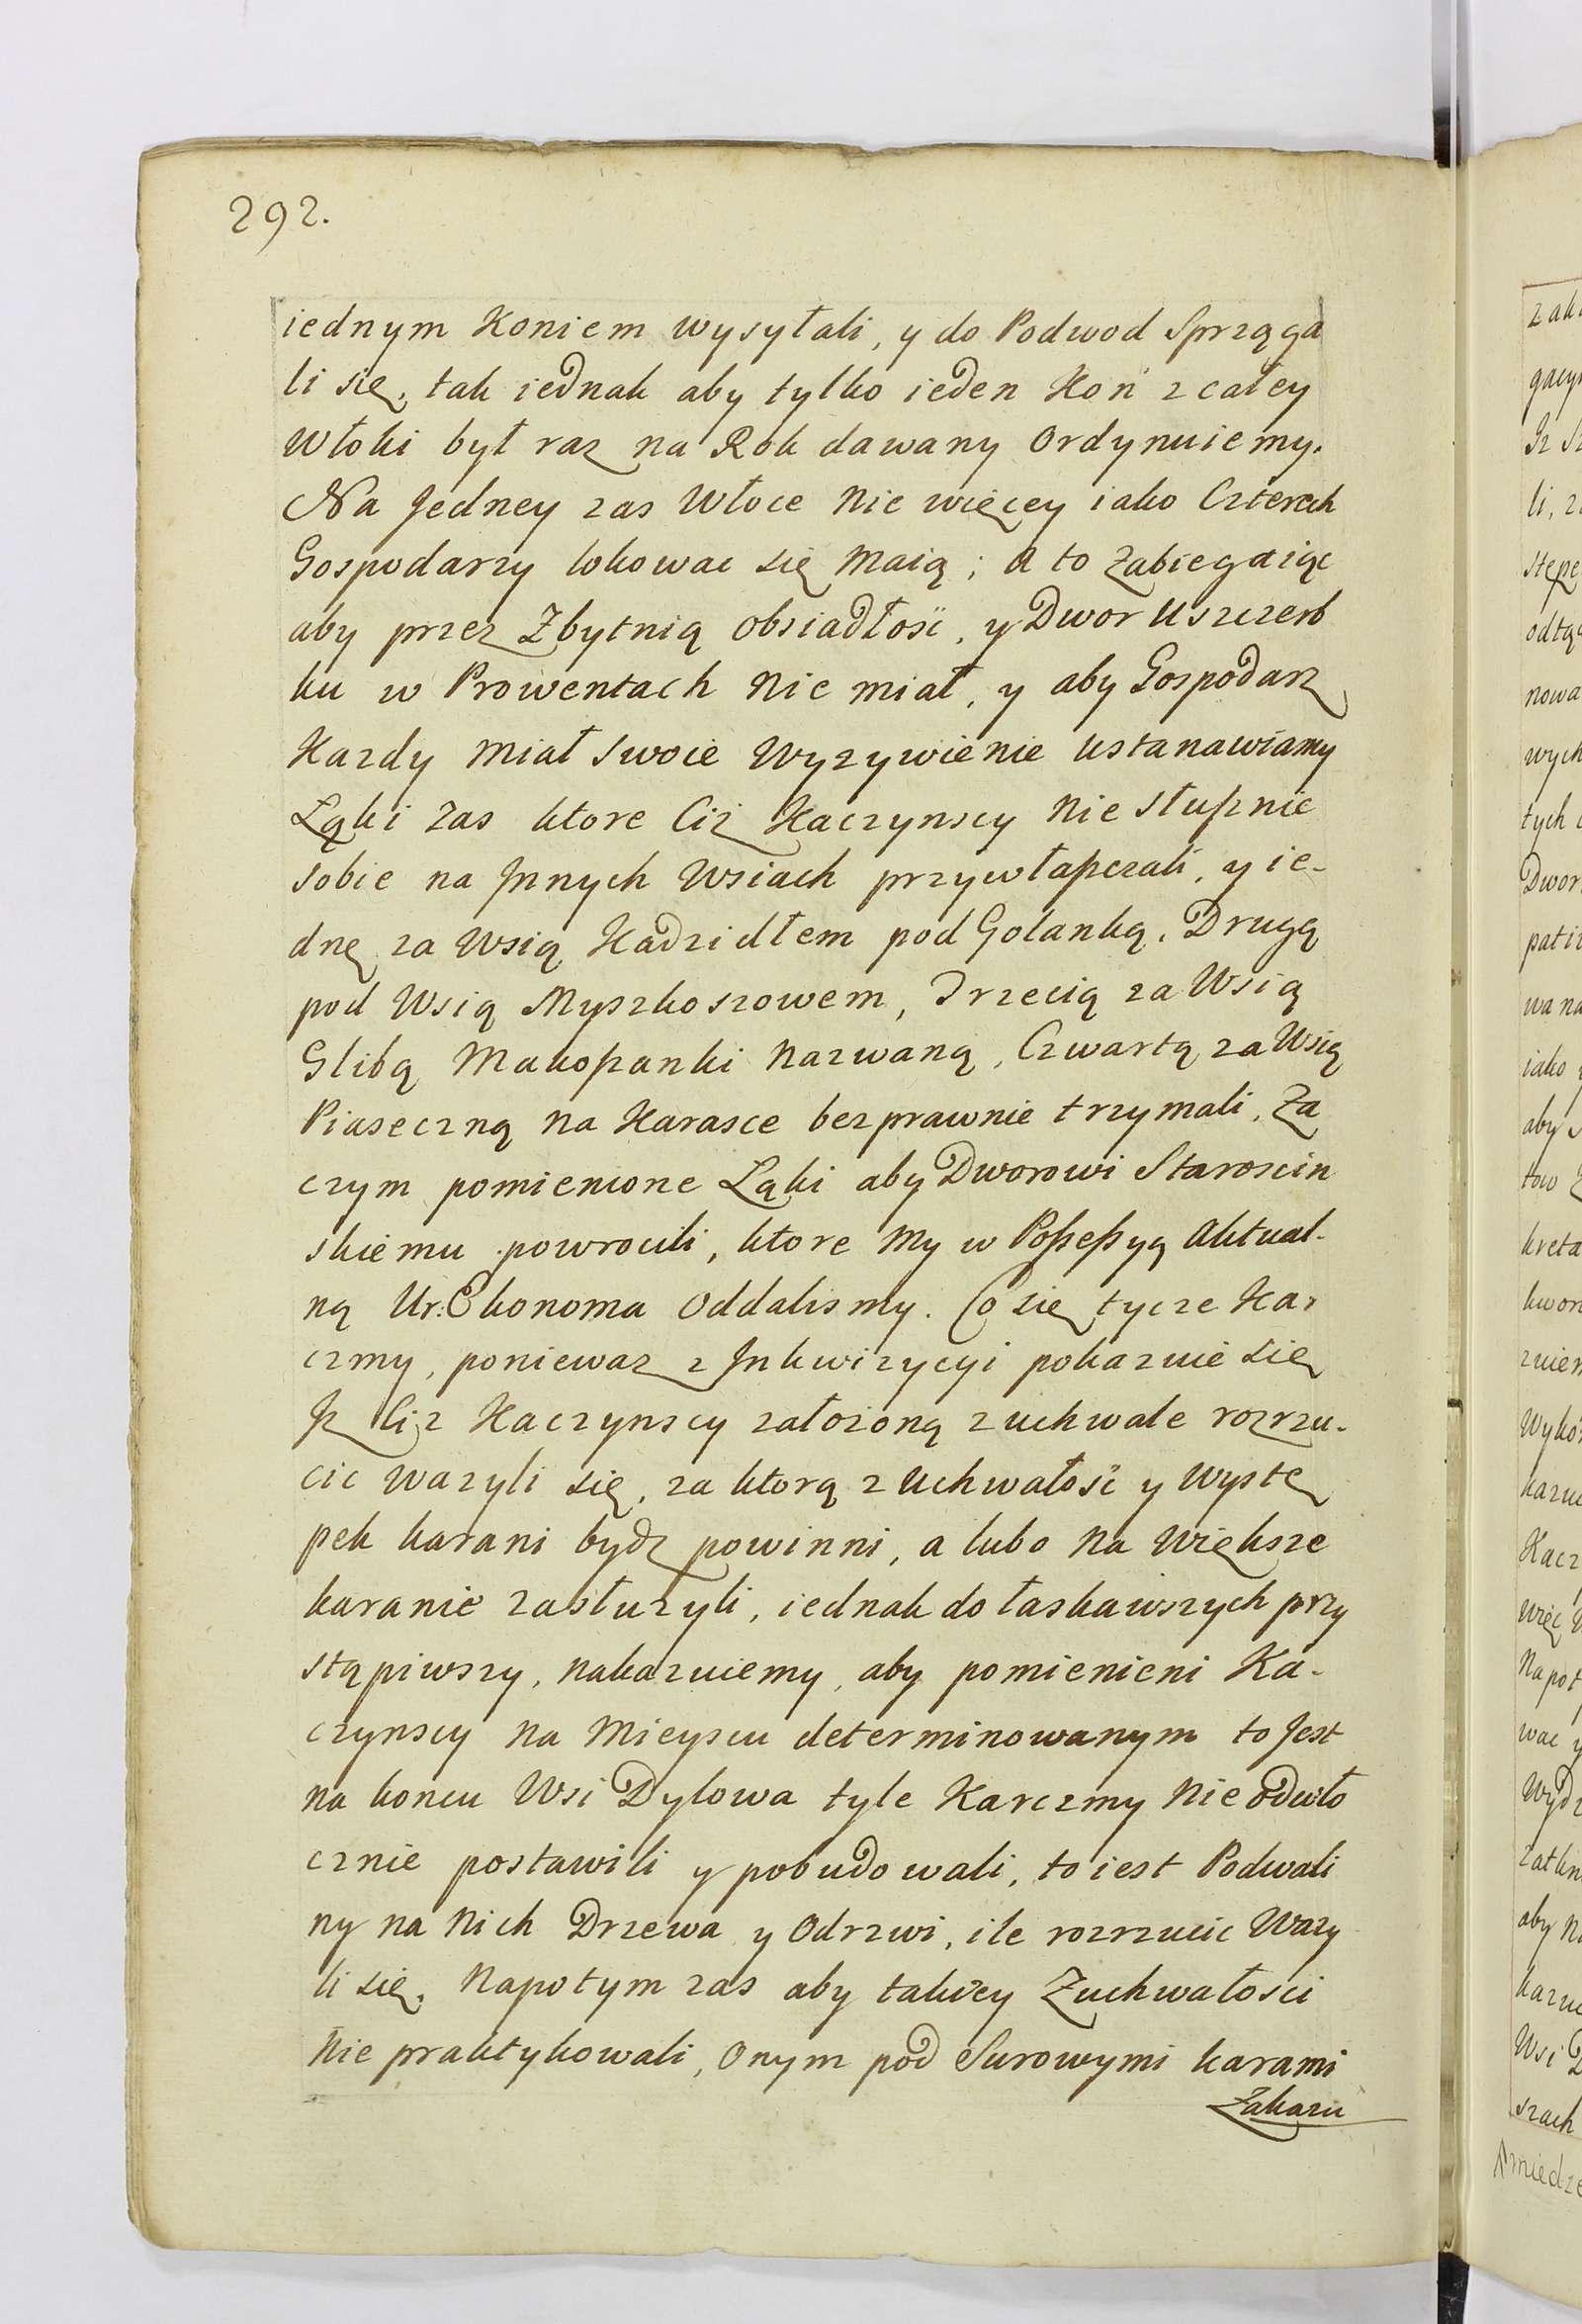 292.
iednym Koniem wysyłali, y do Podwod Sprzęga
li się, tak iednak aby tylko ieden Koń z całey
Włoki był raz na Rok dawany Ordynuiemy.
Na Jedney zas Włoce Nie więcey iako Czterech
Gospodarzy lokowac się Maią; a to Zabiegaiąc
aby przez Zbytnią obsiadłość, y Dwor Uszczerb
ku w Prowentach Nie miał, y aby Gospodarz
Kazdy Miał Swoie Wyzywienie Ustanawiamy
Łąki Zas ktore Ciż Kaczynscy Nie Słuſznie
Sobie na Jnnych Wsiach przywłaſzczali, y ie-
dnę za Wsią Kadzidłem pod Golanką, Drugą
pod Wsią Myszkoszowem, Trzecią za Wsią
Glibą Makoſzanki Nazwaną, Czwartą za Wsią
Piaseczną Na Karasce bezprawnie trzymali, Za
czym pomienione Łąki aby Dworowi Staroscin
skiemu powrocili, ktore My w Poſseſsyą Aktual-
ną Ur: Ekonoma Oddalismy. Co się tycze Kar
czmy, poniewaz z Jnkwizycyi pokazuie się
Jz Ciz Kaczynscy załozoną zuchwale rozrzu-
cic wazyli się, za ktorą zuchwałość y Wystę
pek karani bydz powinni, a lubo Na Większe
karanie zasłuzyli, iednak do łaskawszych przy
stąpiwszy, nakazuiemy, aby pomienieni Ka-
czynscy Na Mieyscu determinowanym to Jest
na koncu Wsi Dylowa tyle Karczmy Nie odwło
cznie postawili y pobudowali, to iest Podwali
ny na Nich Drzewa y Odrzwi, ile rozrzucic Wazy
li się. Napotym zas aby takiey Zuchwałosci
Nie praktykowali, Onym pod Surowymi karami
Zakazu